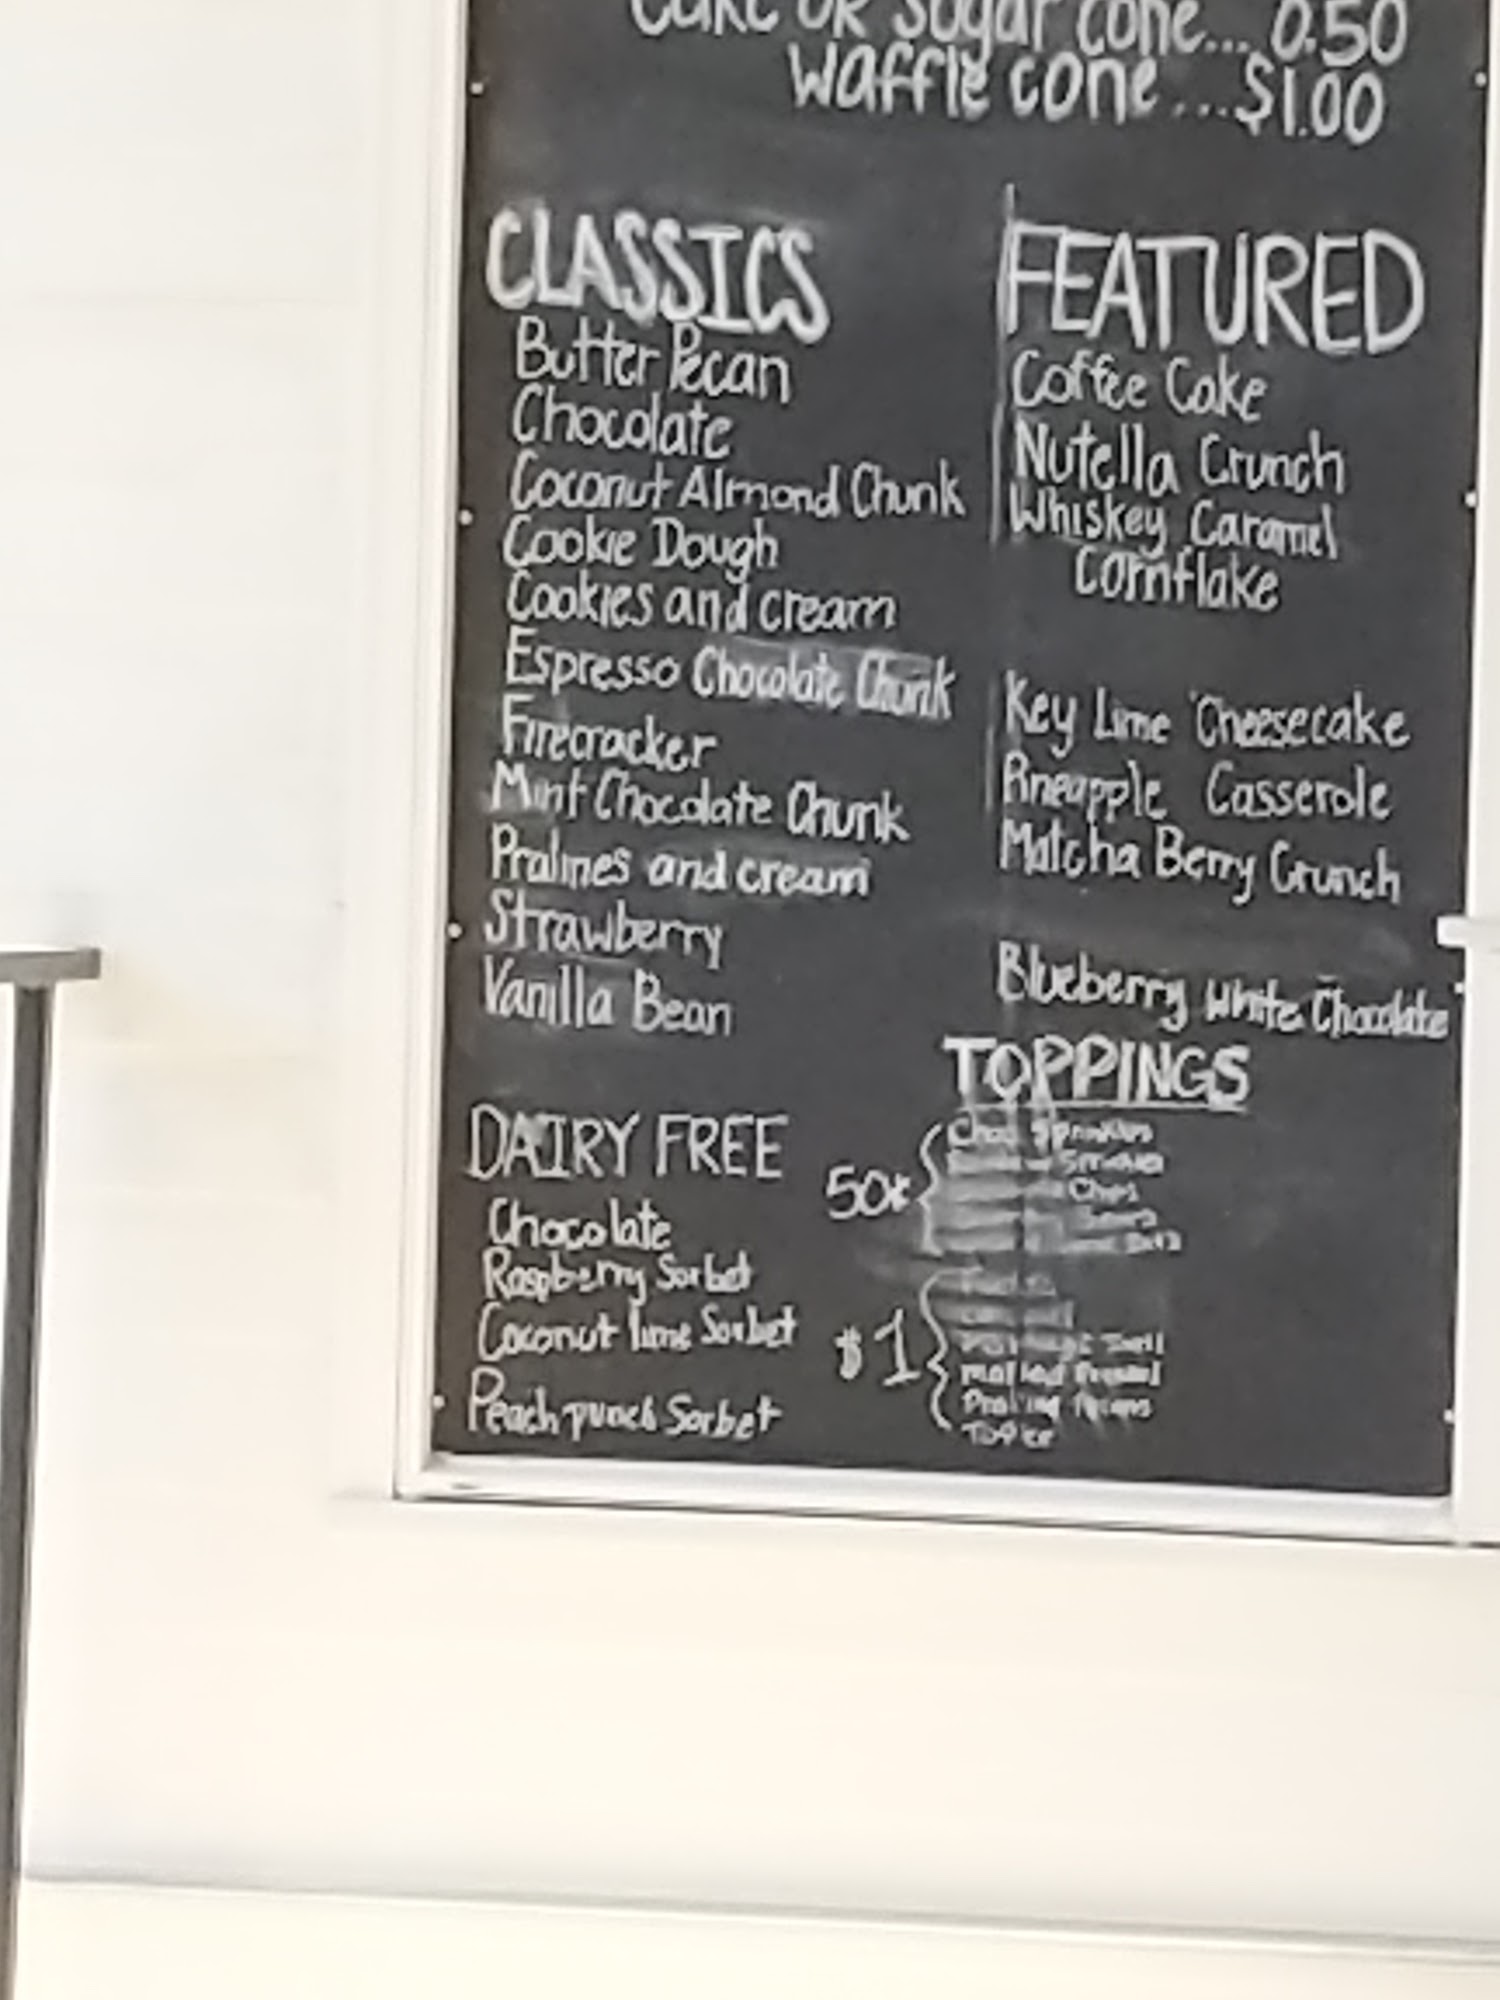 Cake or Sugar cone... 0.50
Waffle cone ...$1.00
CLASSICS
Butter Pecan
Chocolate
Coconut Almond Chunk
Cookie Dough
Cookies and cream
Espresso Chocolate Chunk
Firecracker
Mint Chocolate Chunk
Pralines and cream
Strawberry
Vanilla Bean
FEATURED
Coffee Cake
Nutella Crunch
Whiskey Caramel
Cornflake
Key Lime Cheesecake
Pineapple Casserole
Matcha Berry Crunch
Blueberry White Chocolate
DAIRY FREE
Chocolate
Raspberry Sorbet
Coconut lime Sorbet
Peach punch Sorbet
TOPPINGS
50¢
Choc Sprinkles
Chips
$1